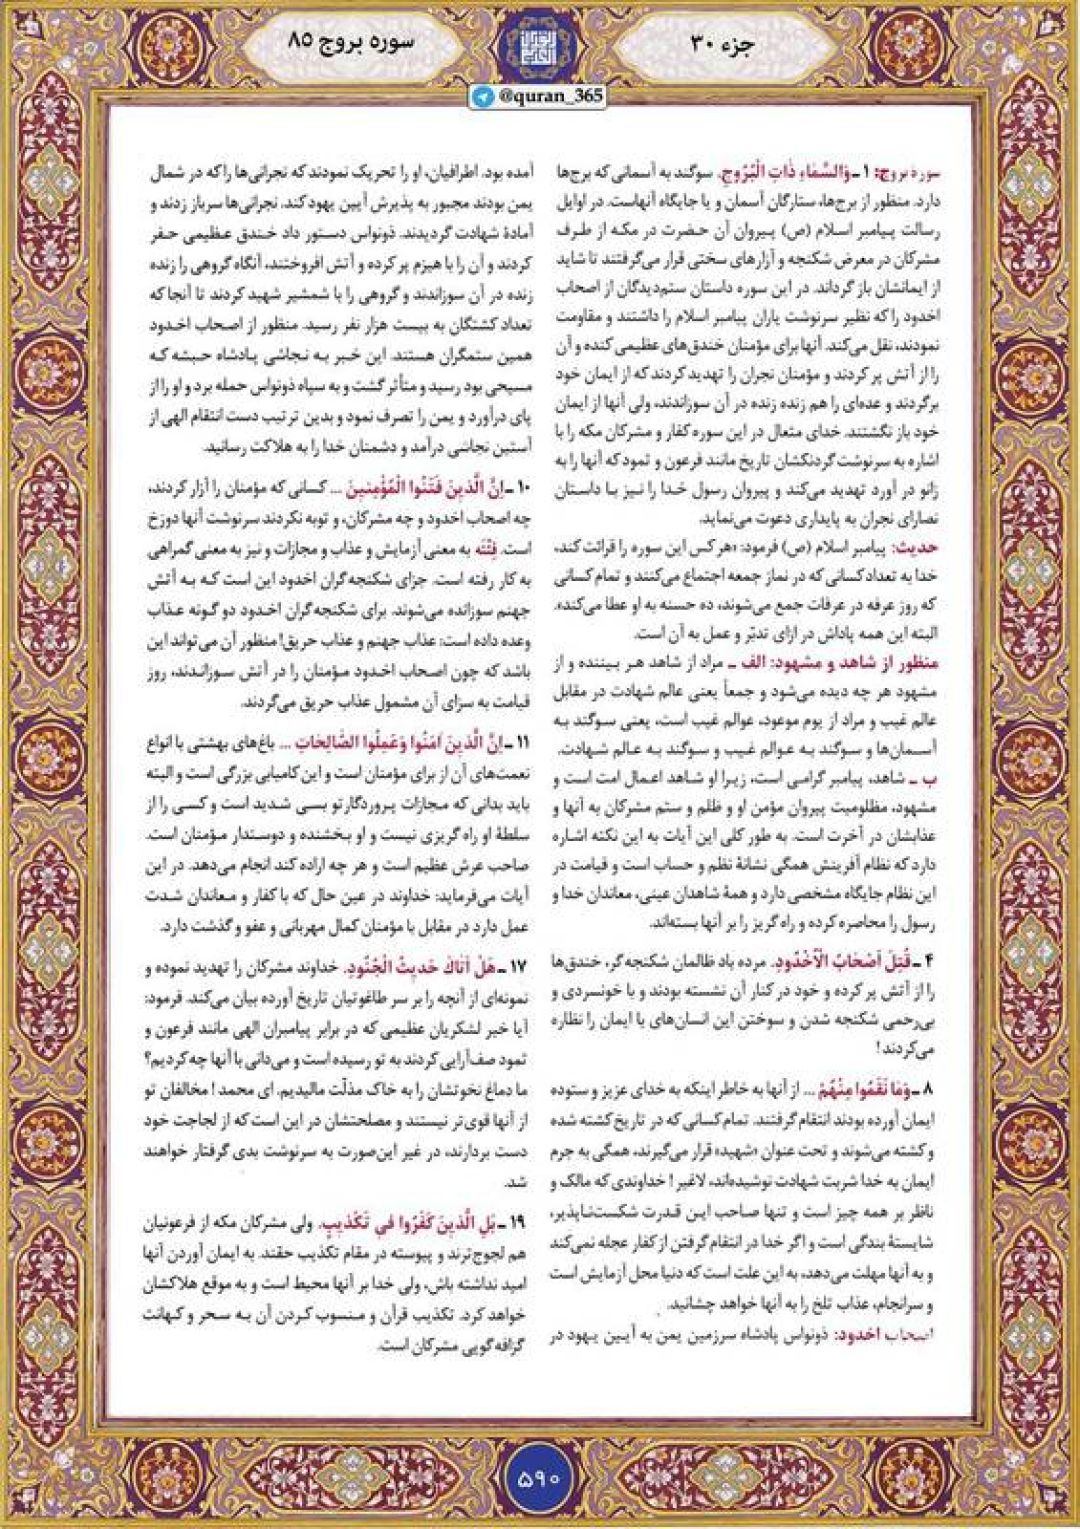 جزء ۳۰
سوره بروج ۸۵
@quran_365
سورۀ بروج: ۱ـ وَالسَّمَاءِ ذَاتِ الْبُرُوجِ. سوگند به آسمانی که برج‌ها
دارد. منظور از برج‌ها، ستارگان آسمان و یا جایگاه آنهاست. در اوایل
رسالت پیامبر اسلام (ص) پیروان آن حضرت در مکه از طرف
مشرکان در معرض شکنجه و آزارهای سختی قرار می‌گرفتند تا شاید
از ایمانشان باز گرداند. در این سوره داستان ستم‌دیدگان از اصحاب
اخدود را که نظیر سرنوشت یاران پیامبر اسلام را داشتند و مقاومت
نمودند، نقل می‌کند. آنها برای مؤمنان خندق‌های عظیمی کنده و آن
را از آتش پر کردند و مؤمنان نجران را تهدید کردند که از ایمان خود
برگردند و عده‌ای را هم زنده زنده در آن سوزاندند، ولی آنها از ایمان
خود باز نگشتند. خدای متعال در این سوره کفار و مشرکان مکه را با
اشاره به سرنوشت گردنکشان تاریخ مانند فرعون و ثمود که آنها را به
زانو در آورد تهدید می‌کند و پیروان رسول خدا را نیز با داستان
نصارای نجران به پایداری دعوت می‌نماید.
حدیث: پیامبر اسلام (ص) فرمود: «هرکس این سوره را قرائت کند،
خدا به تعداد کسانی که در نماز جمعه اجتماع می‌کنند و تمام کسانی
که روز عرفه در عرفات جمع می‌شوند، ده حسنه به او عطا می‌کند».
البته این همه پاداش در ازای تدبّر و عمل به آن است.
منظور از شاهد و مشهود: الف ـ مراد از شاهد هر بیننده و از
مشهود هر چه دیده می‌شود و جمعاً یعنی عالم شهادت در مقابل
عالم غیب و مراد از یوم موعود، عوالم غیب است، یعنی سوگند به
آسمان‌ها و سوگند به عوالم غیب و سوگند به عالم شهادت.
ب ـ شاهد، پیامبر گرامی است، زیرا او شاهد اعمال امت است و
مشهود، مظلومیت پیروان مؤمن او و ظلم و ستم مشرکان به آنها و
عذابشان در آخرت است. به طور کلی این آیات به این نکته اشاره
دارد که نظام آفرینش همگی نشانۀ نظم و حساب است و قیامت در
این نظام جایگاه مشخصی دارد و همۀ شاهدان عینی، معاندان خدا و
رسول را محاصره کرده و راه گریز را بر آنها بسته‌اند.
۴ـ قُتِلَ اَصْحَابُ الْاُخْدُودِ. مرده باد ظالمان شکنجه‌گر، خندق‌ها
را از آتش پر کرده و خود در کنار آن نشسته بودند و با خونسردی و
بی‌رحمی شکنجه شدن و سوختن این انسان‌های با ایمان را نظاره
می‌کردند!
۸ـ وَمَا نَقَمُوا مِنْهُمْ ... از آنها به خاطر اینکه به خدای عزیز و ستوده
ایمان آورده بودند انتقام گرفتند. تمام کسانی که در تاریخ کشته شده
و کشته می‌شوند و تحت عنوان «شهید» قرار می‌گیرند، همگی به جرم
ایمان به خدا شربت شهادت نوشیده‌اند، لاغیر! خداوندی که مالک و
ناظر بر همه چیز است و تنها صاحب این قدرت شکست‌ناپذیر،
شایستۀ بندگی است و اگر خدا در انتقام گرفتن از کفار عجله نمی‌کند
و به آنها مهلت می‌دهد، به این علت است که دنیا محل آزمایش است
و سرانجام، عذاب تلخ را به آنها خواهد چشانید.
اصحاب اخدود: ذونواس پادشاه سرزمین یمن به آیین یهود در
آمده بود. اطرافیان، او را تحریک نمودند که نجرانی‌ها را که در شمال
یمن بودند مجبور به پذیرش آیین یهود کند. نجرانی‌ها سرباز زدند و
آمادۀ شهادت گردیدند. ذونواس دستور داد خندق عظیمی حفر
کردند و آن را با هیزم پر کرده و آتش افروختند، آنگاه گروهی را زنده
زنده در آن سوزاندند و گروهی را با شمشیر شهید کردند تا آنجا که
تعداد کشتگان به بیست هزار نفر رسید. منظور از اصحاب اخدود
همین ستمگران هستند. این خبر به نجاشی پادشاه حبشه که
مسیحی بود رسید و متأثر گشت و به سپاه ذونواس حمله برد و او را از
پای درآورد و یمن را تصرف نمود و بدین ترتیب دست انتقام الهی از
آستین نجاشی درآمد و دشمنان خدا را به هلاکت رسانید.
۱۰ـ اِنَّ الَّذینَ فَتَنُوا الْمُؤْمِنینَ ... کسانی که مؤمنان را آزار کردند،
چه اصحاب اخدود و چه مشرکان، و توبه نکردند سرنوشت آنها دوزخ
است. فِتْنَه به معنی آزمایش و عذاب و مجازات و نیز به معنی گمراهی
به کار رفته است. جزای شکنجه‌گران اخدود این است که به آتش
جهنم سوزانده می‌شوند. برای شکنجه‌گران اخدود دو گونه عذاب
وعده داده است: عذاب جهنم و عذاب حریق! منظور آن می‌تواند این
باشد که چون اصحاب اخدود مؤمنان را در آتش سوزاندند، روز
قیامت به سزای آن مشمول عذاب حریق می‌گردند.
۱۱ـ اِنَّ الَّذینَ اٰمَنُوا وَعَمِلُوا الصَّالِحَاتِ ... باغ‌های بهشتی با انواع
نعمت‌های آن از برای مؤمنان است و این کامیابی بزرگی است و البته
باید بدانی که مجازات پروردگار تو بسی شدید است و کسی را از
سلطۀ او راه گریزی نیست و او بخشنده و دوستدار مؤمنان است.
صاحب عرش عظیم است و هر چه اراده کند انجام می‌دهد. در این
آیات می‌فرماید: خداوند در عین حال که با کفار و معاندان شدت
عمل دارد در مقابل با مؤمنان کمال مهربانی و عفو و گذشت دارد.
۱۷ـ هَلْ اَتَاكَ حَدیثُ الْجُنُودِ. خداوند مشرکان را تهدید نموده و
نمونه‌ای از آنچه را بر سر طاغوتیان تاریخ آورده بیان می‌کند. فرمود:
آیا خبر لشکریان عظیمی که در برابر پیامبران الهی مانند فرعون و
ثمود صف‌آرایی کردند به تو رسیده است و می‌دانی با آنها چه کردیم؟
ما دماغ نخوتشان را به خاک مذلّت مالیدیم. ای محمد! مخالفان تو
از آنها قوی‌تر نیستند و مصلحتشان در این است که از لجاجت خود
دست بردارند، در غیر این‌صورت به سرنوشت بدی گرفتار خواهند
شد.
۱۹ـ بَلِ الَّذینَ كَفَرُوا فی تَكْذیبٍ. ولی مشرکان مکه از فرعونیان
هم لجوج‌ترند و پیوسته در مقام تکذیب حقند. به ایمان آوردن آنها
امید نداشته باش، ولی خدا بر آنها محیط است و به موقع هلاکشان
خواهد کرد. تکذیب قرآن و منسوب کردن آن به سحر و کهانت
گزافه‌گویی مشرکان است.
۵۹۰